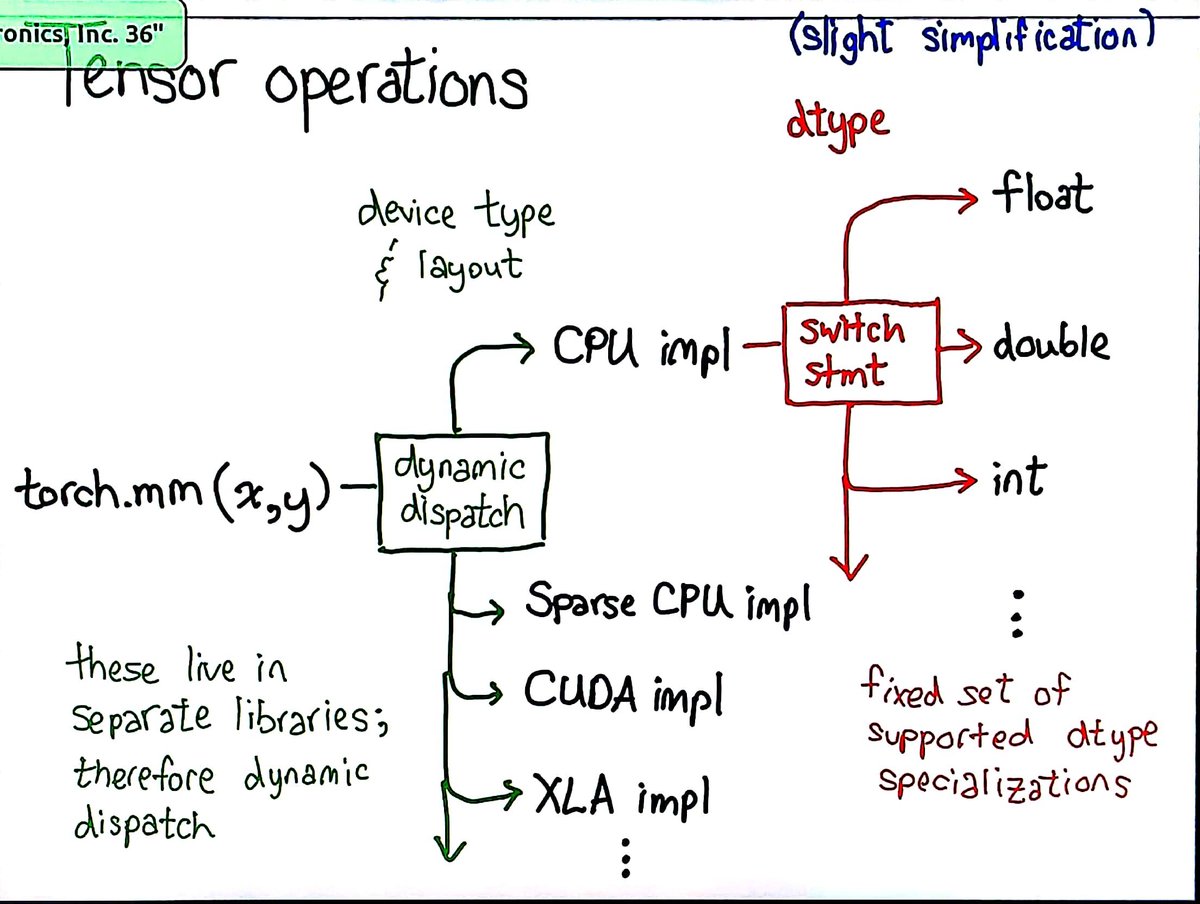 onics, Inc. 36"
(slight simplification)
Tensor operations
dtype
device type
& layout
float
CPU impl
switch
stmt
double
torch.mm(x,y)
dynamic
dispatch
int
Sparse CPU impl
CUDA impl
XLA impl
⋮
these live in
separate libraries;
therefore dynamic
dispatch
⋮
fixed set of
supported dtype
specializations